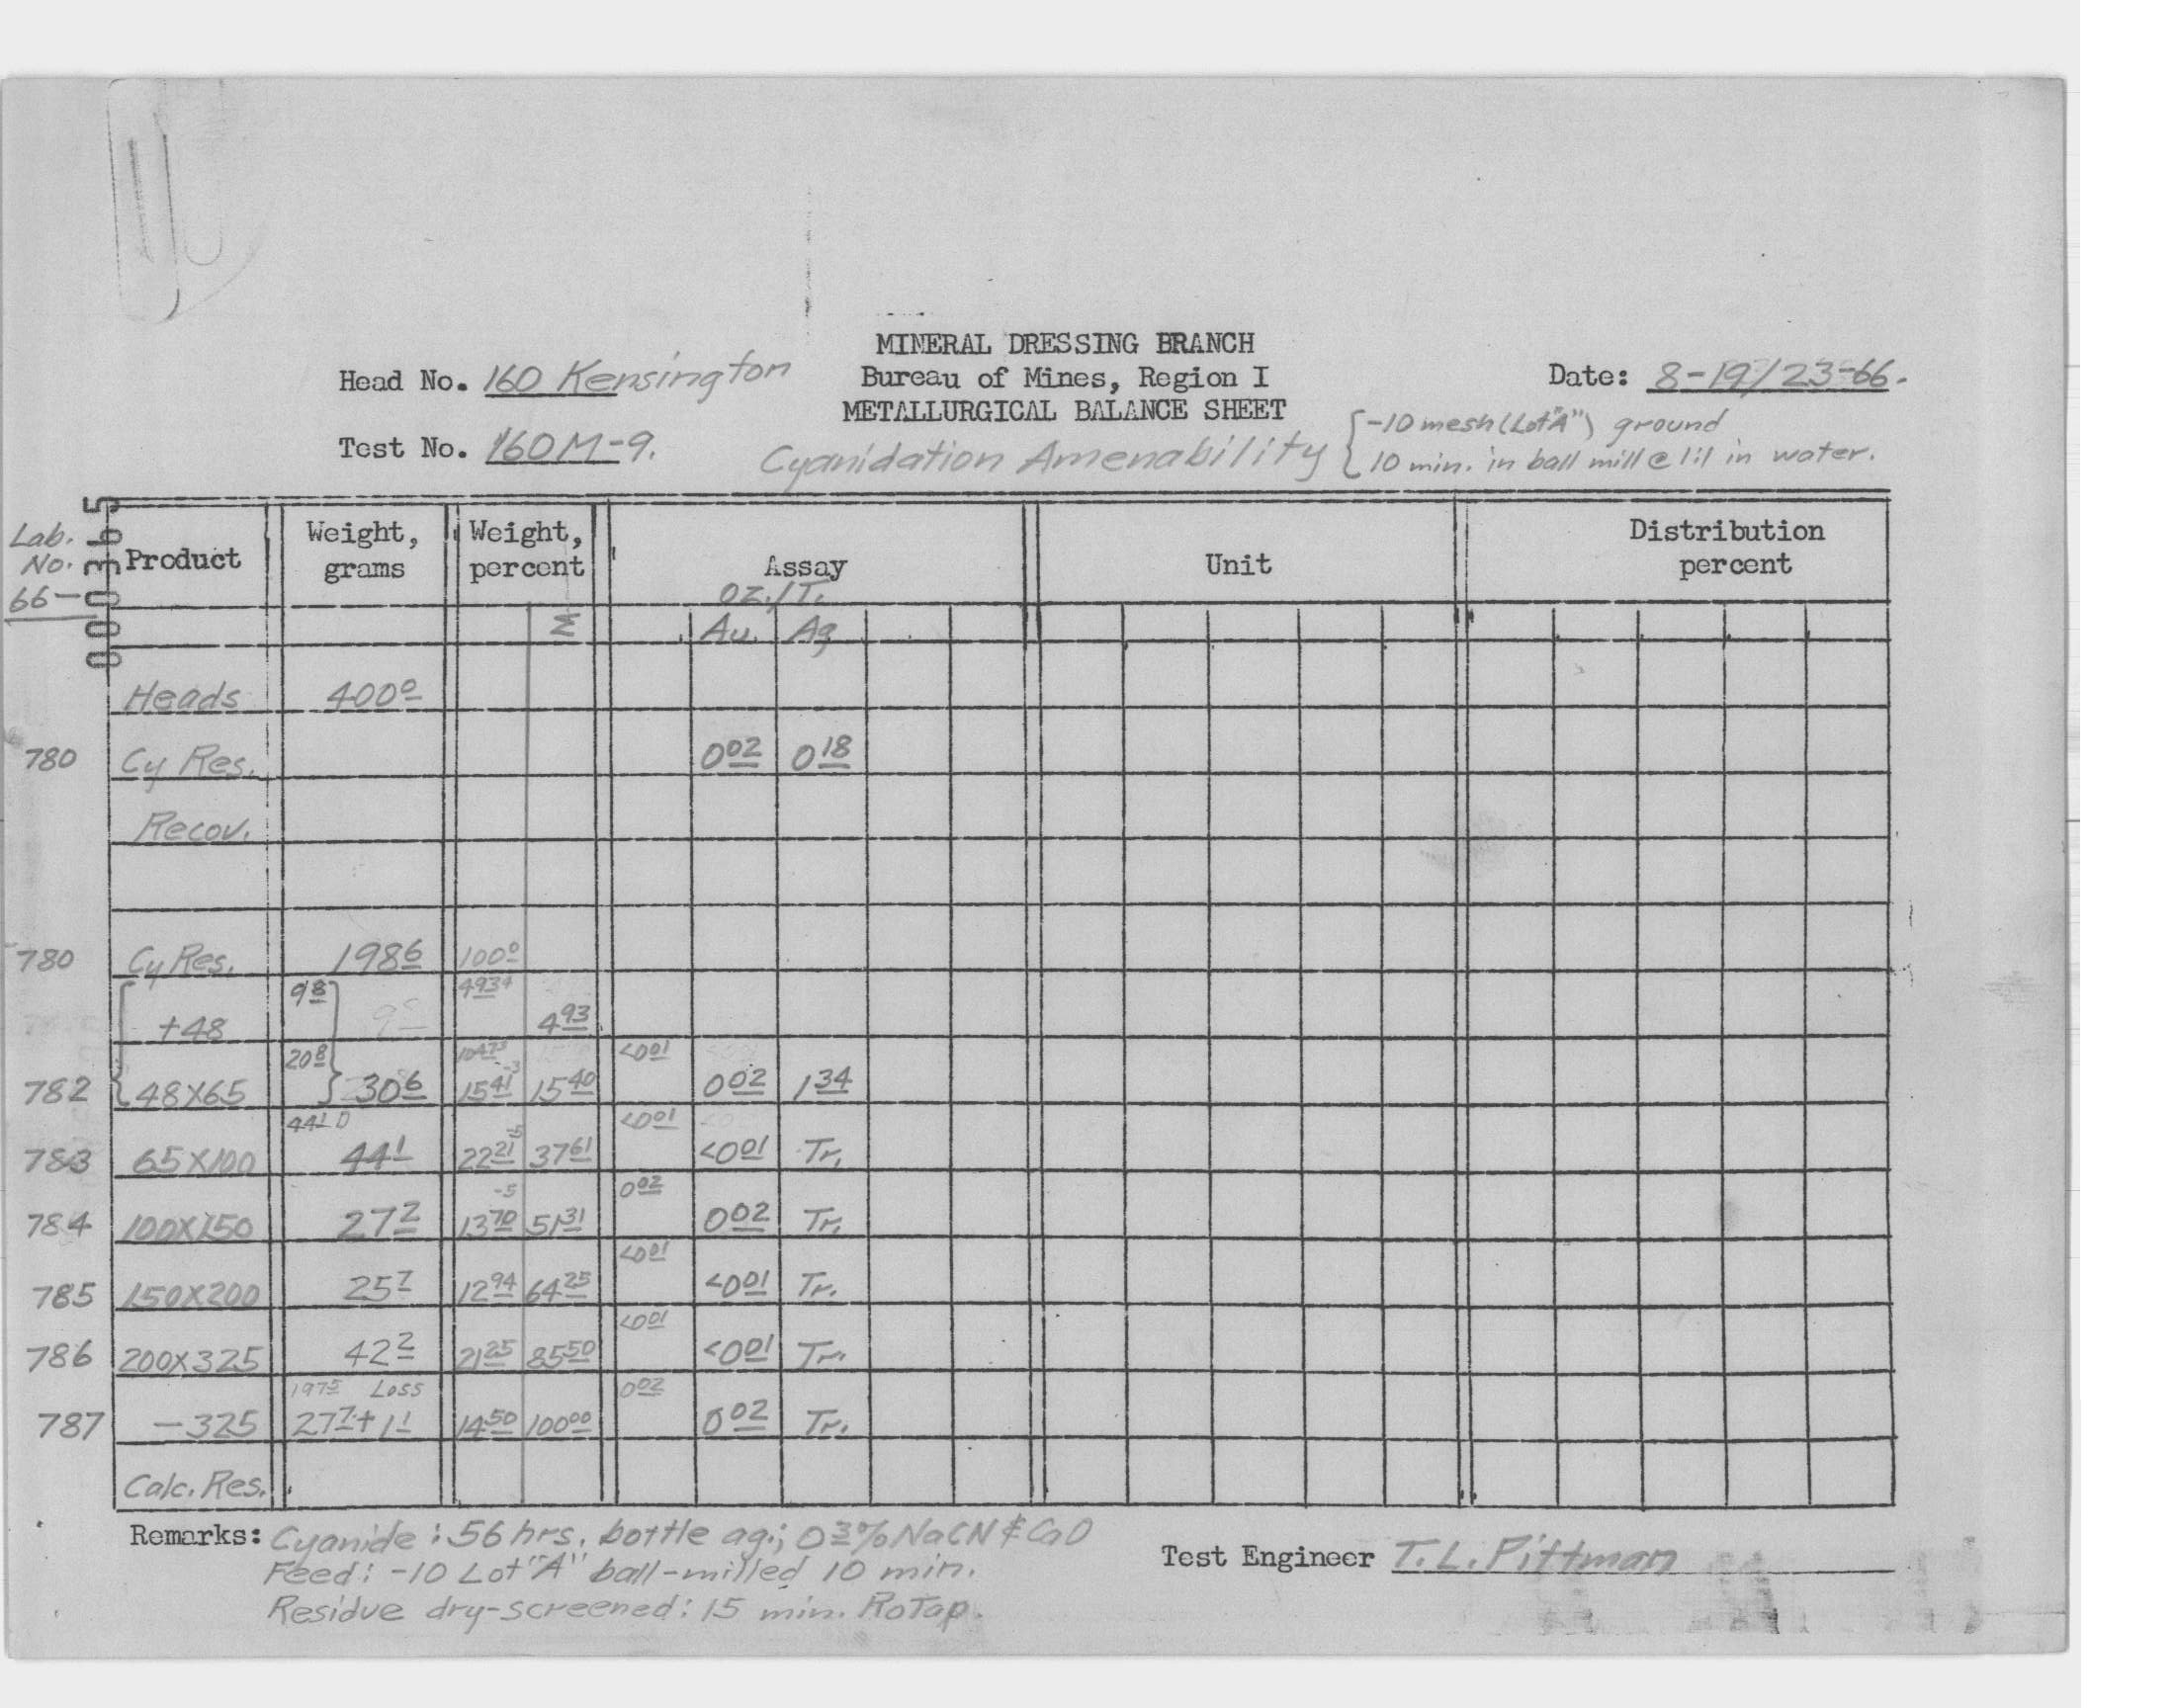 MINERAL DRESSING BRANCH
Head No. 160 Kensington Bureau of Mines, Region I Date: 8-19/23-66.
METALLURGICAL BALANCE SHEET
Test No. 160M-9. Cyanidation Amenability { -10 mesh (Lot "A") ground
10 min. in ball mill @ 1:1 in water.
000365
Lab. No. 66— Product Weight, grams Weight, percent Assay oz./T. Unit Distribution percent
Σ Au. Ag
Heads 400 0
780 Cy Res. 0 02 0 18
Recov.
780 Cy Res. 198 6 100 0
9 8 4 93 4
+48 4 93
20 8 10 47 3 <0 01
782 48X65 30 6 15 41 15 40 0 02 1 34
44 1 <0 01
783 65X100 44 1 22 21 37 61 <0 01 Tr.
-5 0 02
784 100X150 27 2 13 70 51 31 0 02 Tr.
<0 01
785 150X200 25 7 12 94 64 25 <0 01 Tr.
<0 01
786 200X325 42 2 21 25 85 50 <0 01 Tr.
197 5 Loss 0 02
787 -325 27 7 + 1 1 14 50 100 00 0 02 Tr.
Calc. Res.
Remarks: Cyanide: 56 hrs. bottle ag.; 0 3% NaCN & CaO
Feed: -10 Lot "A" ball-milled 10 min.
Residue dry-screened: 15 min. RoTap.
Test Engineer T. L. Pittman